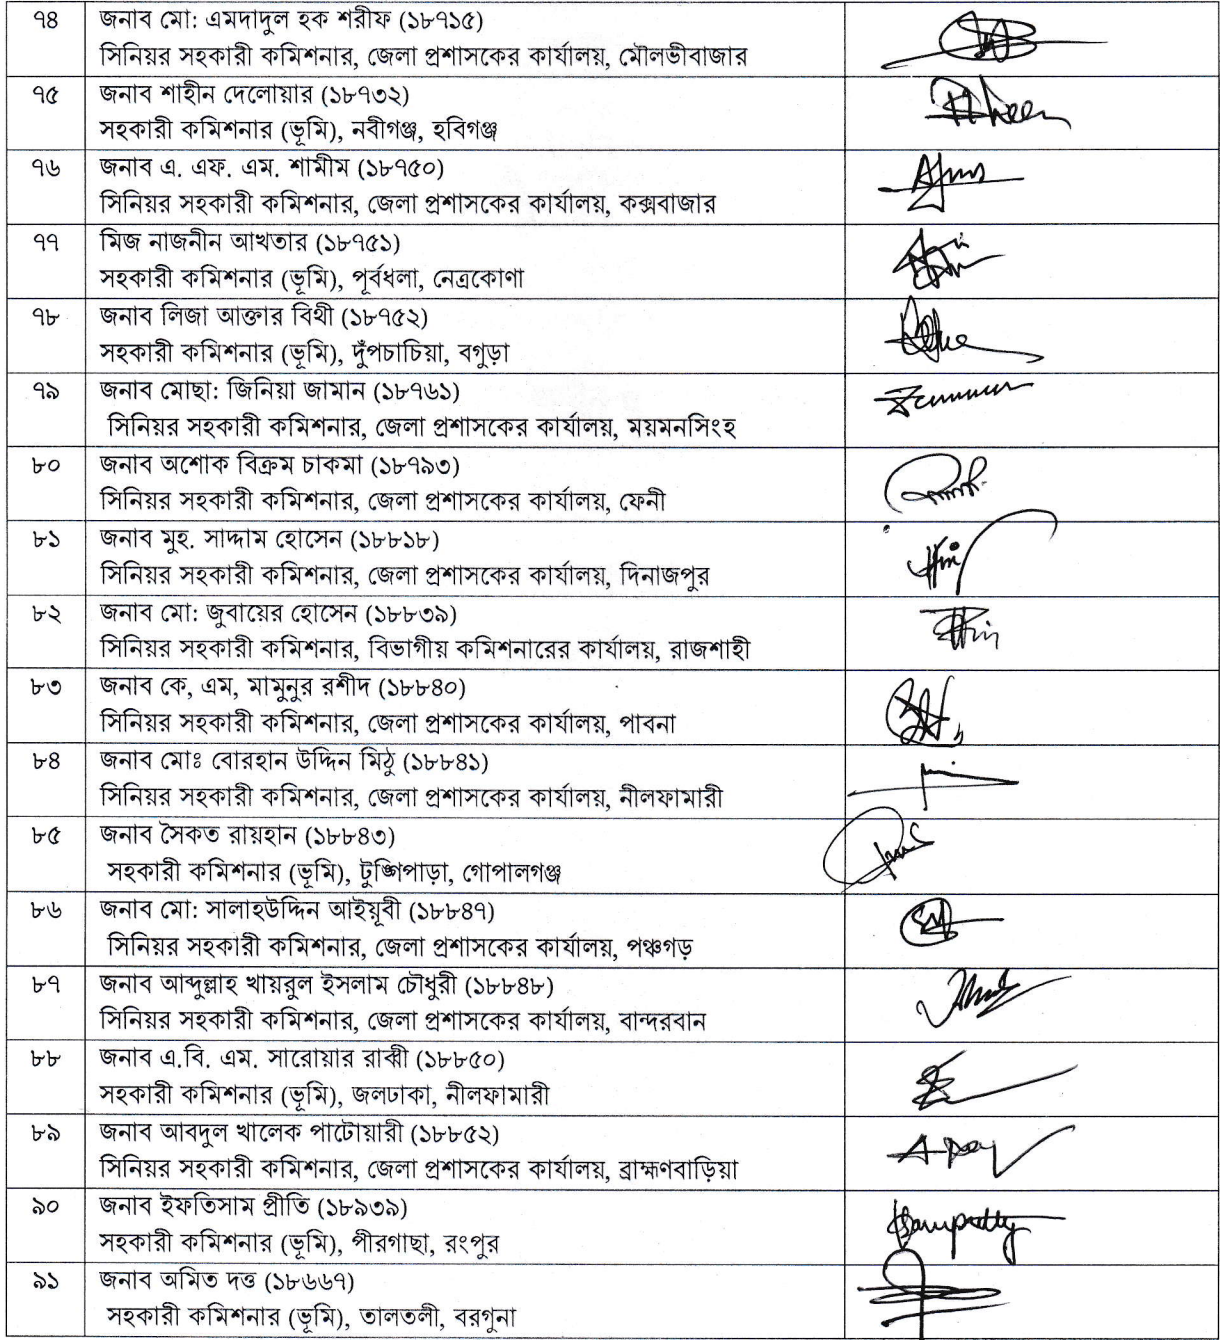 ৭৪ জনাব মো: এমদাদুল হক শরীফ (১৮৭১৫)
সিনিয়র সহকারী কমিশনার, জেলা প্রশাসকের কার্যালয়, মৌলভীবাজার
৭৫ জনাব শাহীন দেলোয়ার (১৮৭৩২)
সহকারী কমিশনার (ভূমি), নবীগঞ্জ, হবিগঞ্জ
৭৬ জনাব এ. এফ. এম. শামীম (১৮৭৫০)
সিনিয়র সহকারী কমিশনার, জেলা প্রশাসকের কার্যালয়, কক্সবাজার
৭৭ মিজ নাজনীন আখতার (১৮৭৫১)
সহকারী কমিশনার (ভূমি), পূর্বধলা, নেত্রকোণা
৭৮ জনাব লিজা আক্তার বিথী (১৮৭৫২)
সহকারী কমিশনার (ভূমি), দুঁপচাচিয়া, বগুড়া
৭৯ জনাব মোছা: জিনিয়া জামান (১৮৭৬১)
সিনিয়র সহকারী কমিশনার, জেলা প্রশাসকের কার্যালয়, ময়মনসিংহ
৮০ জনাব অশোক বিক্রম চাকমা (১৮৭৯৩)
সিনিয়র সহকারী কমিশনার, জেলা প্রশাসকের কার্যালয়, ফেনী
৮১ জনাব মুহ. সাদ্দাম হোসেন (১৮৮১৮)
সিনিয়র সহকারী কমিশনার, জেলা প্রশাসকের কার্যালয়, দিনাজপুর
৮২ জনাব মো: জুবায়ের হোসেন (১৮৮৩৯)
সিনিয়র সহকারী কমিশনার, বিভাগীয় কমিশনারের কার্যালয়, রাজশাহী
৮৩ জনাব কে, এম, মামুনুর রশীদ (১৮৮৪০)
সিনিয়র সহকারী কমিশনার, জেলা প্রশাসকের কার্যালয়, পাবনা
৮৪ জনাব মোঃ বোরহান উদ্দিন মিঠু (১৮৮৪১)
সিনিয়র সহকারী কমিশনার, জেলা প্রশাসকের কার্যালয়, নীলফামারী
৮৫ জনাব সৈকত রায়হান (১৮৮৪৩)
সহকারী কমিশনার (ভূমি), টুঙ্গিপাড়া, গোপালগঞ্জ
৮৬ জনাব মো: সালাহউদ্দিন আইয়ূবী (১৮৮৪৭)
সিনিয়র সহকারী কমিশনার, জেলা প্রশাসকের কার্যালয়, পঞ্চগড়
৮৭ জনাব আব্দুল্লাহ খায়রুল ইসলাম চৌধুরী (১৮৮৪৮)
সিনিয়র সহকারী কমিশনার, জেলা প্রশাসকের কার্যালয়, বান্দরবান
৮৮ জনাব এ.বি. এম. সারোয়ার রাব্বী (১৮৮৫০)
সহকারী কমিশনার (ভূমি), জলঢাকা, নীলফামারী
৮৯ জনাব আবদুল খালেক পাটোয়ারী (১৮৮৫২)
সিনিয়র সহকারী কমিশনার, জেলা প্রশাসকের কার্যালয়, ব্রাহ্মণবাড়িয়া
৯০ জনাব ইফতিসাম প্রীতি (১৮৯৩৯)
সহকারী কমিশনার (ভূমি), পীরগাছা, রংপুর
৯১ জনাব অমিত দত্ত (১৮৬৬৭)
সহকারী কমিশনার (ভূমি), তালতলী, বরগুনা